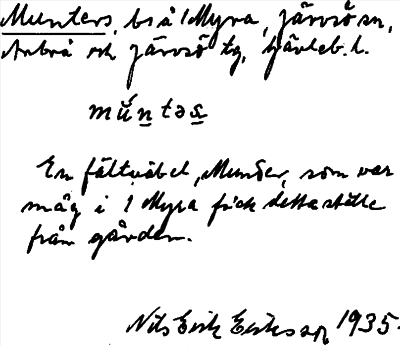 Munters, bs å 1 Myra, Järvsö sn,
Arbrå och Järvsö tg, Gävleb. l.
mún̲təs̲
En fältväbel, Munder, som var
måg i 1 Myra fick detta ställe
från gården.
Nils Erik Eriksson 1935.